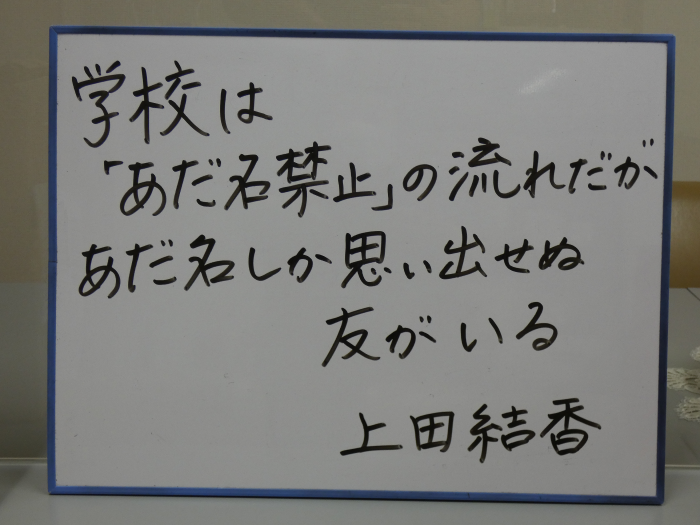 学校は
「あだ名禁止」の流れだが
あだ名しか思い出せぬ
友がいる
上田結香